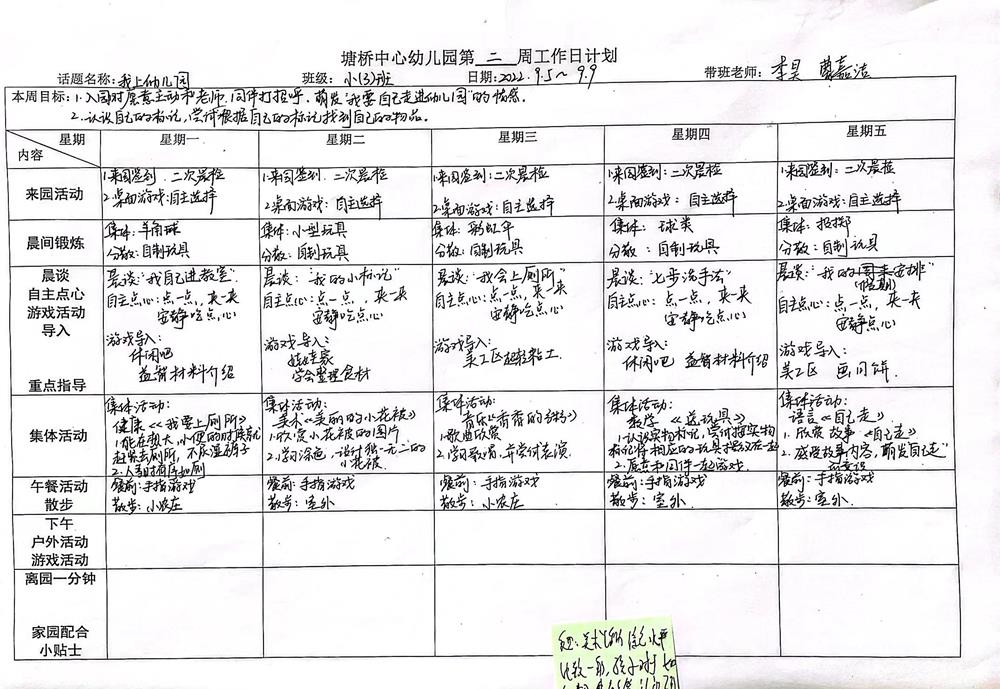 塘桥中心幼儿园第 二 周工作日计划
话题名称：我上幼儿园 班级：小(3)班 日期：2022.9.5～9.9 带班老师：李昊 嘉洁
本周目标：1.入园时愿意主动和老师、同伴打招呼，萌发"我要自己走进幼儿园"的情感。
2.认识自己的标记，尝试根据自己的标记找到自己的物品。
星期 内容 星期一 星期二 星期三 星期四 星期五
来园活动
1.来园签到、二次晨检
2.桌面游戏：自主选择
1.来园签到、二次晨检
2.桌面游戏：自主选择
1.来园签到：二次晨检
2.桌面游戏：自主选择
1.来园签到：二次晨检
2.桌面游戏：自主选择
1.来园签到：二次晨检
2.桌面游戏：自主选择
晨间锻炼
集体：羊角球
分散：自制玩具
集体：小型玩具
分散：自制玩具
集体：彩虹伞
分散：自制玩具
集体：球类
分散：自制玩具
集体：
分散：自制玩具
晨谈
自主点心
游戏活动
导入
重点指导
晨谈："我自己进教室"
自主点心：点一点，夹一夹
安静吃点心
游戏导入：
休闲吧
益智材料介绍
晨谈："我的小标记"
自主点心：点一点，夹一夹
安静吃点心
游戏导入：
娃娃家
学会整理食材
晨谈："我会上厕所"
自主点心：点一点，夹一夹
安静吃点心
游戏导入：
美工区超轻粘土
晨谈："七步洗手法"
自主点心：点一点，夹一夹
安静吃点心
游戏导入：
休闲吧 益智材料介绍
晨谈："我的周末安排"
(假期)
自主点心：点一点，夹一夹
安静点心
游戏导入：
美工区 画月饼
集体活动
集体活动：
健康《我要上厕所》
1.能在想大、小便的时候就
赶紧去厕所，不尿湿裤子
2.人多时有序如厕
集体活动：
美术《美丽的小花被》
1.欣赏小花被的图片
2.学习涂色，设计独一无二的
小花被
集体活动：
音乐《香香的》
1.歌曲欣赏
2.学习歌唱，并尝试表演
集体活动：
数学 《送玩具》
1.认识实物标记，尝试按实物
标记将相应的玩具摆放在一起
2.愿意和同伴一起游戏
集体活动：
语言《自己走》
1.欣赏故事《自己走》
2.感受故事内容，萌发"自己走"
的愿望
午餐活动
散步
餐前：手指游戏
散步：小农庄
餐前：手指游戏
散步：室外
餐前：手指游戏
散步：小农庄
餐前：手指游戏
散步：室外
餐前：手指游戏
散步：室外
下午
户外活动
游戏活动
离园一分钟
家园配合
小贴士